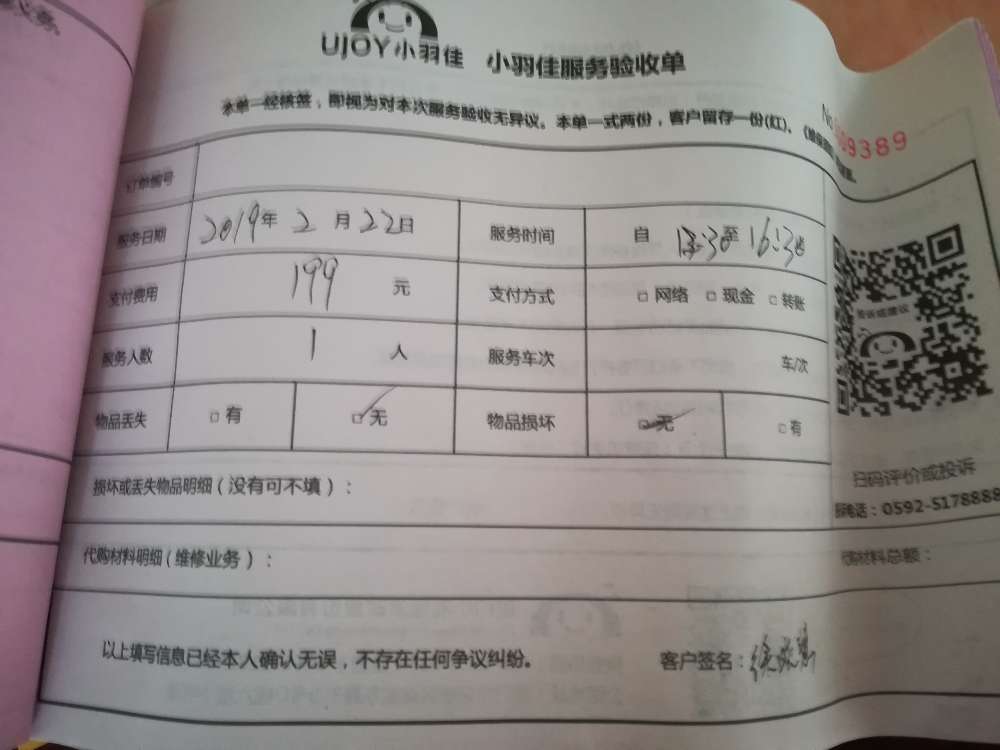 UJOY小羽佳 小羽佳服务验收单
本单一经核签，即视为对本次服务验收无异议。本单一式两份，客户留存一份(红)。
No 09389
订单编号
服务日期 2019年 2月 22日 服务时间 自 至 16:30
支付费用 199 元 支付方式 □网络 □现金 □转账
服务人数 1 人 服务车次 车/次
物品丢失 □有 □无 物品损坏 □无 □有
投诉或建议
扫码评价或投诉
电话：0592-5178888
损坏或丢失物品明细（没有可不填）：
代购材料明细（维修业务）： 代购材料总额：
以上填写信息已经本人确认无误，不存在任何争议纠纷。 客户签名：